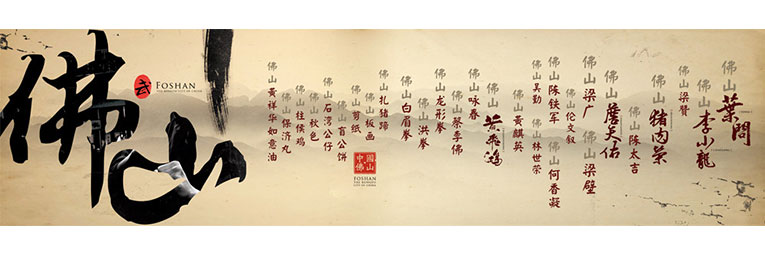 佛山
武
FOSHAN
THE KUNGFU CITY OF CHINA
佛山葉問
佛山李小龍
佛山梁赞
佛山豬肉荣
佛山陈太吉
佛山詹天佑
佛山梁广
佛山梁壁
佛山伦文叙
佛山陈铁军
佛山何香凝
佛山吴勤
佛山林世荣
佛山黄麒英
佛山黃飛鴻
佛山咏春
佛山蔡李佛
佛山龙形拳
佛山洪拳
佛山白眉拳
佛山扎猪蹄
佛山板画
佛山剪纸
佛山盲公饼
佛山石湾公仔
佛山秋色
佛山柱侯鸡
佛山保济丸
佛山黄祥华如意油
中國佛山
FOSHAN
THE KUNGFU
CITY OF CHINA